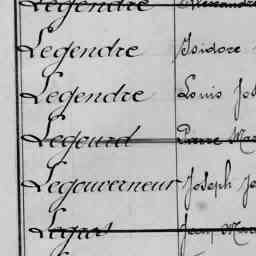 Legendre Alexandre
Legendre Isidore
Legendre Louis Jos
Legeurd Pierre Mar
Legouverneur Joseph Je
Legras Jean Mar